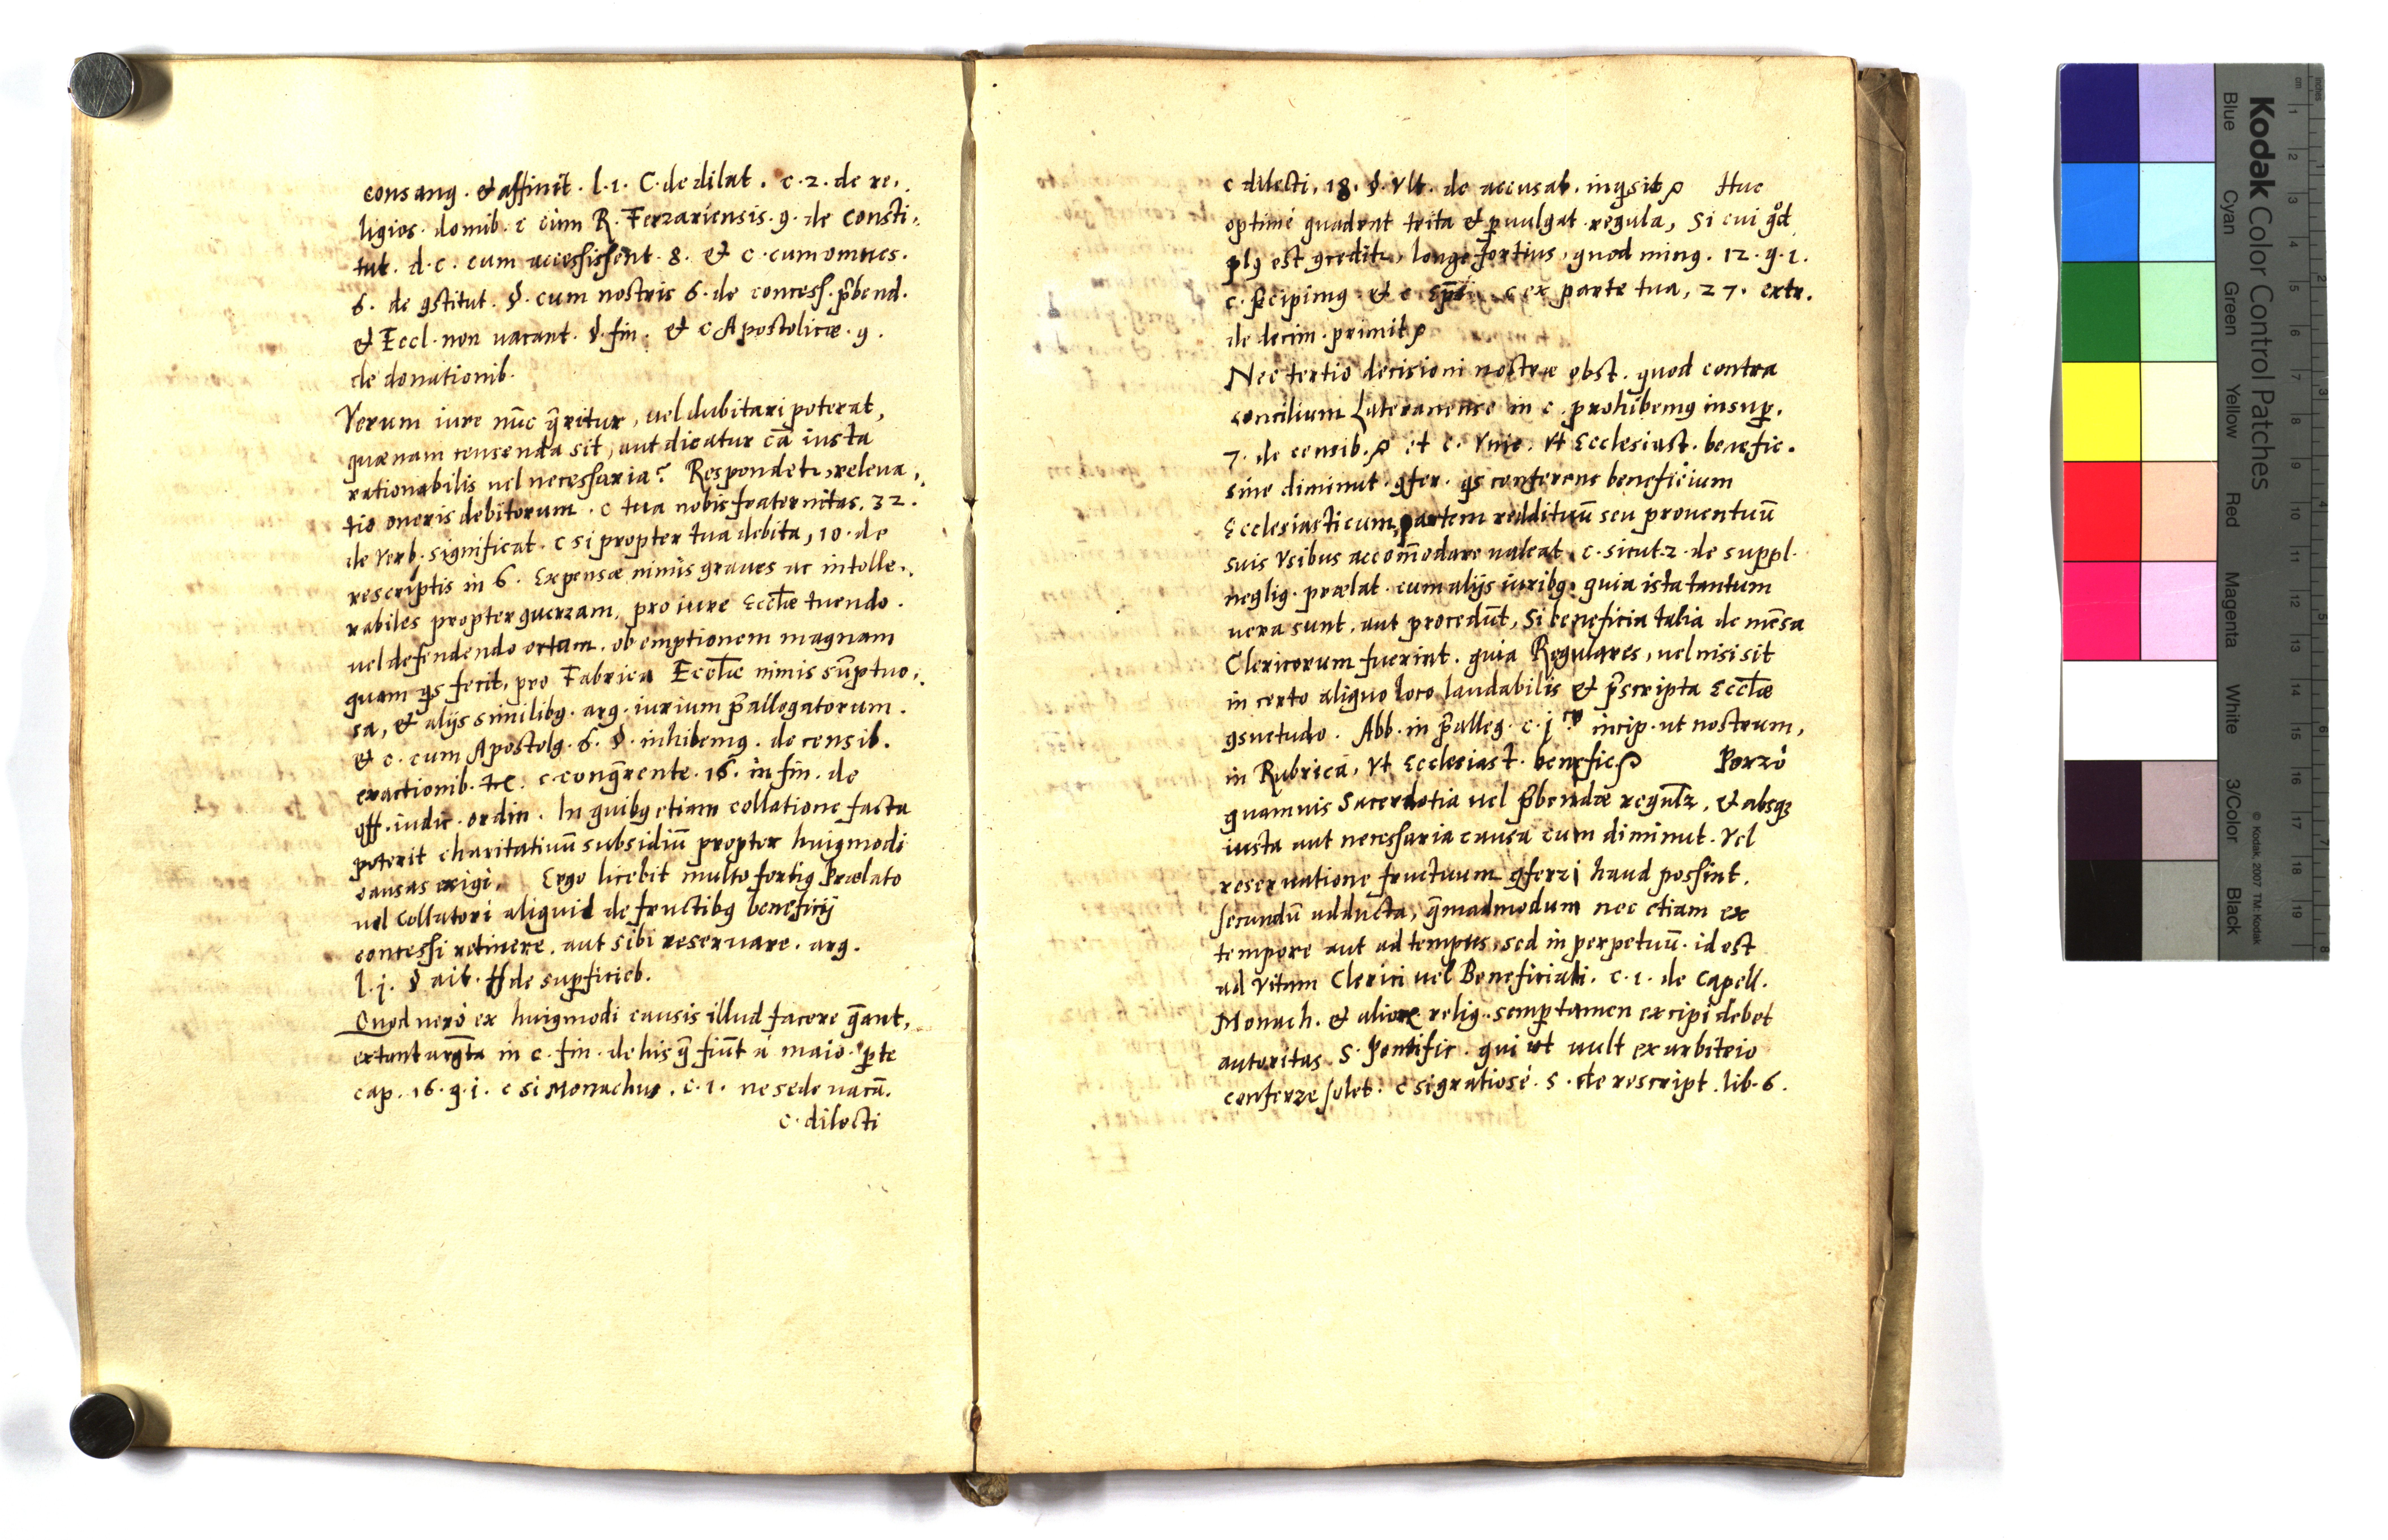 consang. & affinit. l. 1. C. de dilat. c. 2. de re-
ligios. domib. c cùm R. Ferrariensis. 9. de consti-
tut. d. c. cum accessissent. 8. & c. cum omnes.
6. de ꝯstitut. §. cum nostris 6. de concess. p̄bend.
& Eccl. non vacant. §. fin. & c Apostolicæ. 9.
de donationib.
Verum iure nūc q̄ritur, uel dubitari poterat,
quænam censenda sit, aut dicatur cā iusta
rationabilis uel necessaria? Respondetr, releua-
tio oneris debitorum. c tua nobis fraternitas. 32.
de verb. significat. c si propter tua debita, 10. de
rescriptis in 6. Expensæ nimis graues ac intolle-
rabiles propter guerram, pro iure Eccl̄æ tuendo.
uel defendendo ortam. ob emptionem magnam
quam qs fecit, pro Fabrica Eccl̄æ nimis sūptuo-
sa, & alijs similibꝯ. arg. iurium p̄allegatorum.
& c. cum Apostolꝯ. 6. §. inhibemꝯ. de censib.
exactionib. &c. c. conq̄rente. 16. in fin. de
off. iudic. ordin. In quibꝯ etiam collatione facta
poterit charitatiuū subsidiū propter huiꝯmodi
causas exigi. Ergo licebit multo fortiꝯ Prælato
uel Collatori aliquid de fructibꝯ beneficij
concessi retinere. aut sibi reseruare. arg.
l. j. § ait. ff de sup̱ficieb.
Quod uerò ex huiꝯmodi causis illud facere q̄ant,
extant argt̄a in c. fin. de his q̄ fiūt à maio. p̱te
cap. 16. q. i. c si Monachus. c. 1. ne sede uacā.
c. dilecti
c dilecti, 18. §. Vlt. de accusab. inqsit Huc
optimè quadrat trita & p̱uulgat. regula, Si cui qd̊
plꝯ est ꝯceditr, longe fortius, quod minꝯ. 12. q. 1.
c. p̱cipimꝯ. & c c ex parte tua, 27. extr.
de decim. primit
Nec tertio decisioni nostræ obst. quod contra
concilium Lateranense in c. prohibemꝯ insup̱.
7. de censib. et c. Vnic. Vt Ecclesiast. benefic.
sine diminut. ꝯfer. qs conferens beneficium
Ecclesiasticum, partem reddituū seu prouentuū
suis Vsibus accom̄odare ualeat. c. sicut. 2. de suppl.
neglig. prælat. cum alijs iuribꝯ. quia ista tantum
uera sunt. aut procedūt, Si beneficia talia de mēsa
Clericorum fuerint. quia Regulares, uel nisi sit
in certo aliquo loco laudabilis & p̄scripta Eccl̄æ
ꝯsuetudo. Abb. in p̄alleg. c. j incip. ut nostrum,
in Rubrica, Vt Ecclesiast. benefic Porrò
quamuis Sacerdotia uel p̄bendæ regulr̄, & absqꝫ
iusta aut necessaria causa cum diminut. Vel
reseruatione fructuum ꝯferri haud possint.
secundū adducta, q̄madmodum nec etiam ex
tempore aut ad tempus, sed in perpetuū. id est
ad Vitam Clerici uel Beneficiati. c. 1. de Capell.
Monach. & alioꝝ relig. semp̱ tamen excipi debet
autoritas S. Pontific. qui ut uult ex arbitrio
conferre solet. c si gratiosè. 5. de rescript. lib. 6.